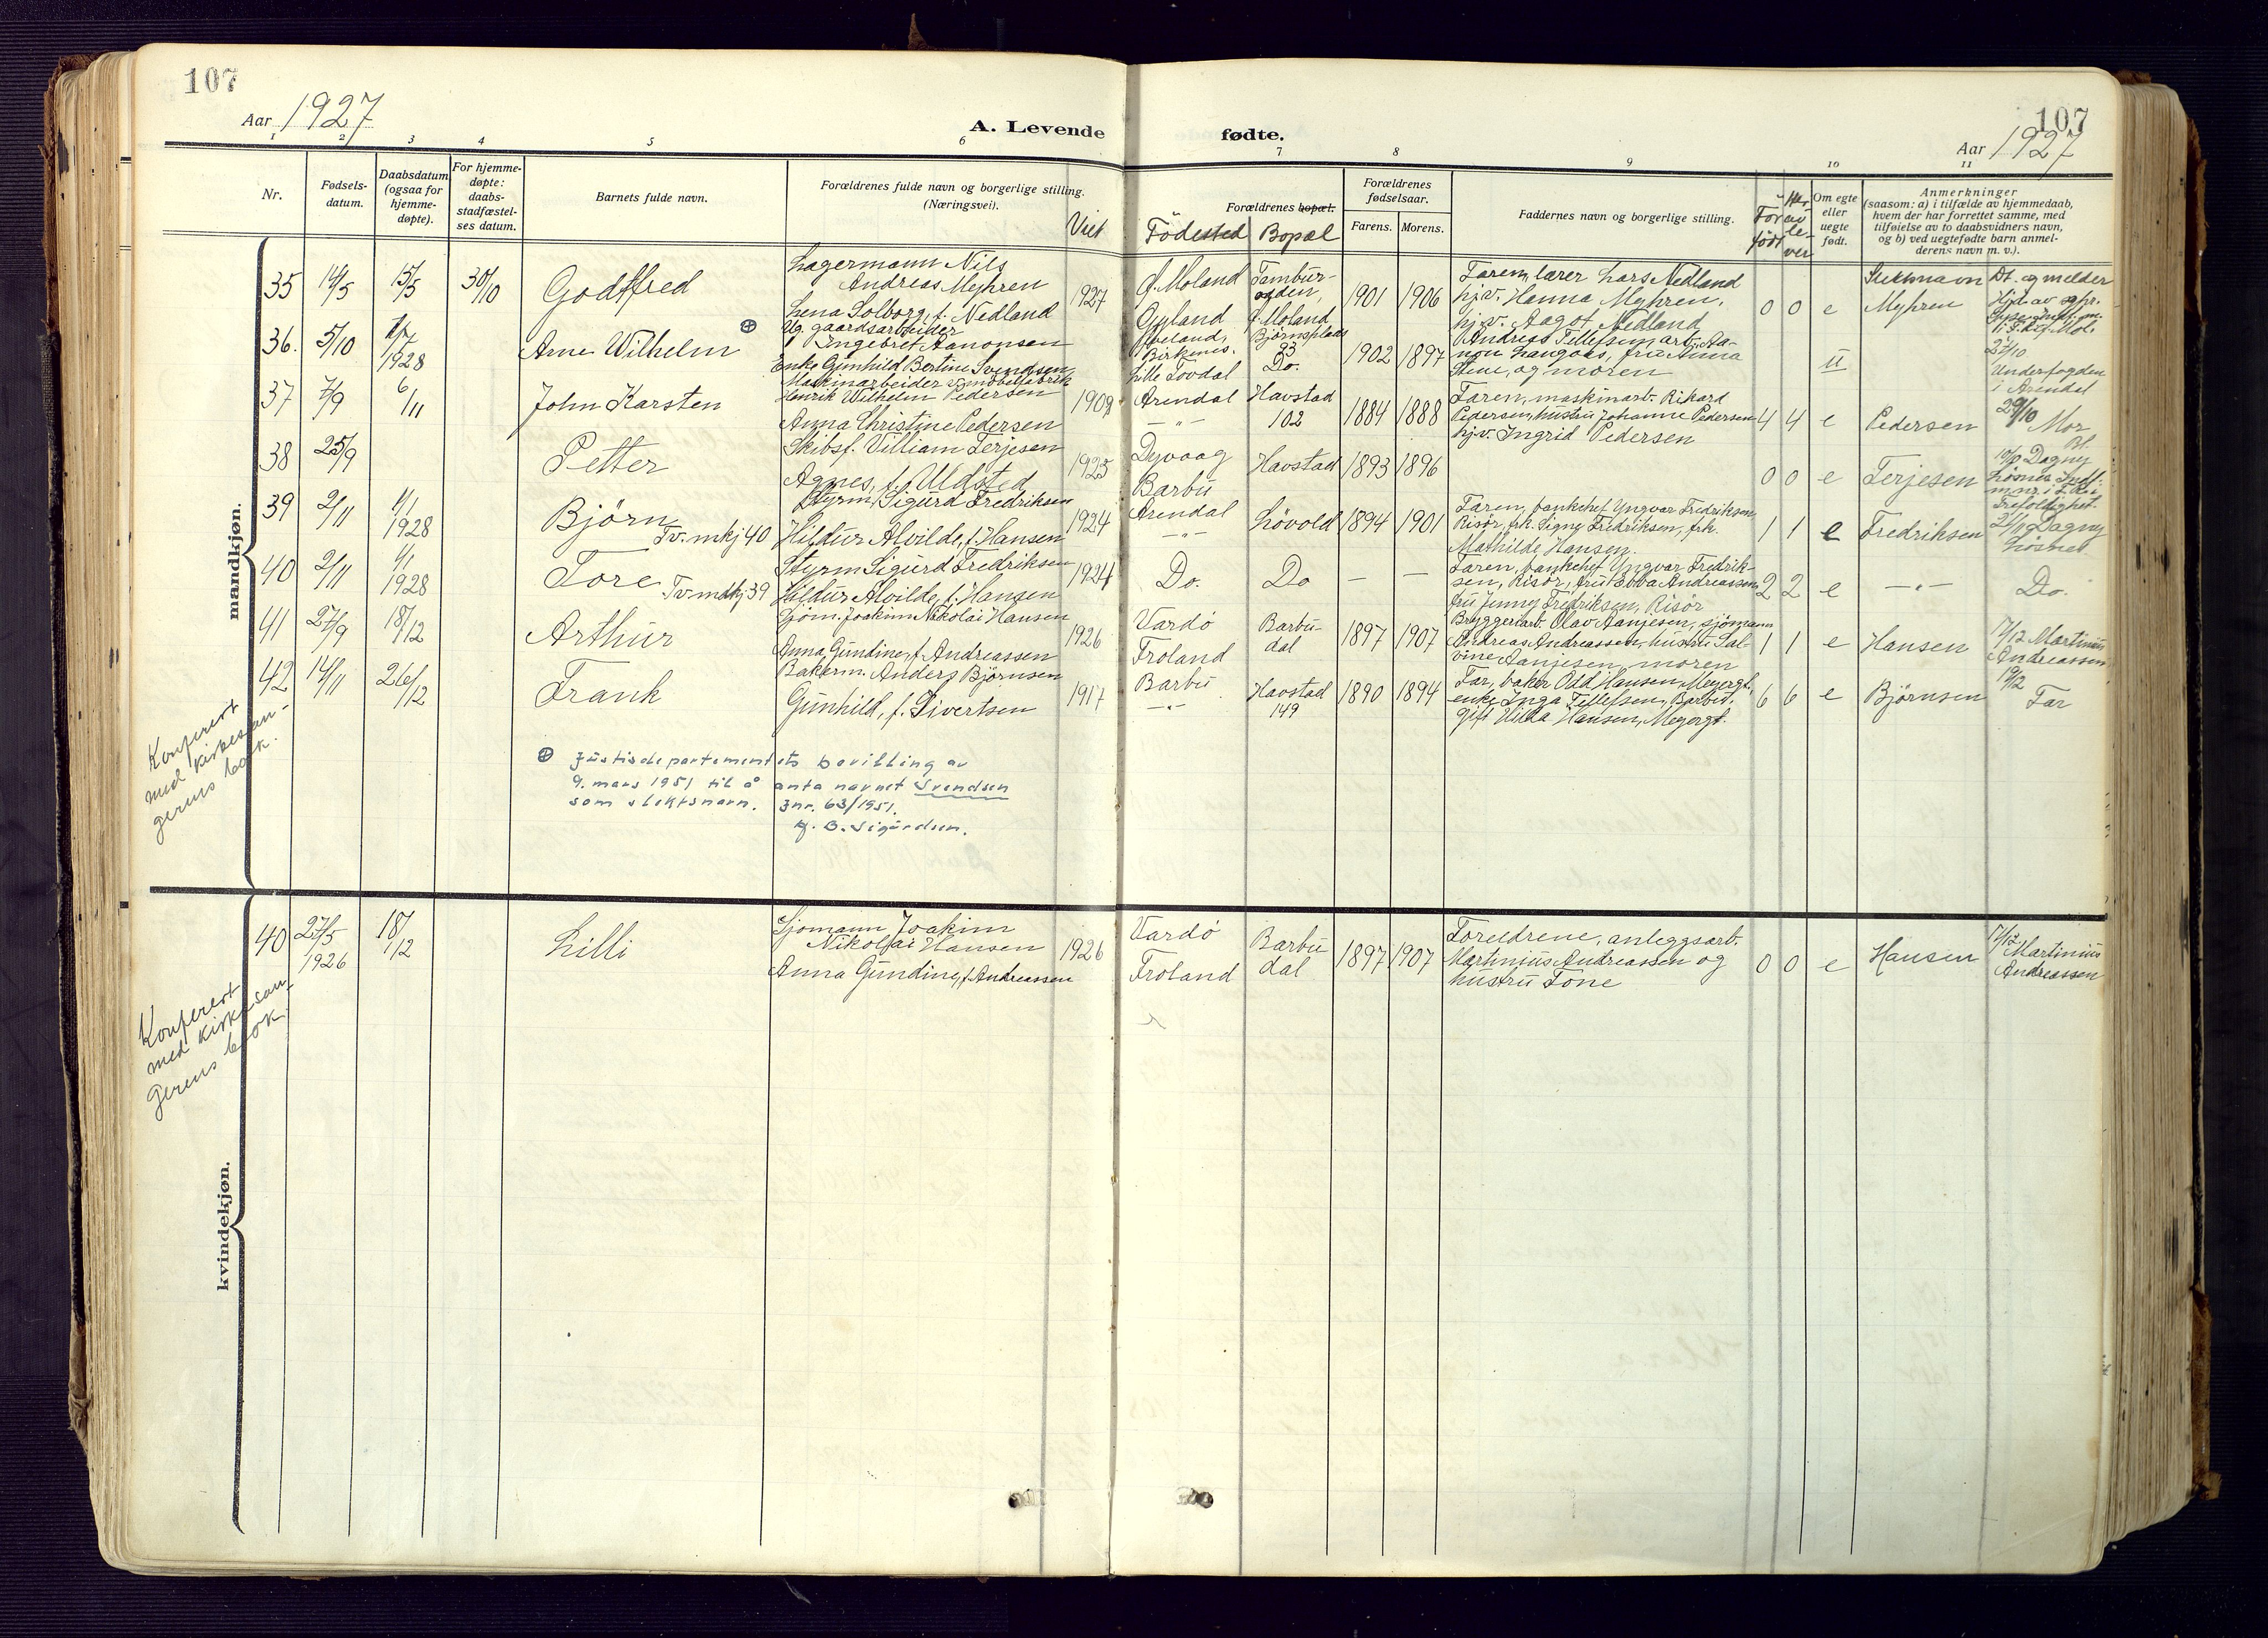 107
Aar 1927
A. Levende
fødte.
107
Aar 1927
1 2 3 4 5 6 7 8 9 10 11
Nr.
Fødsels-
datum.
Daabsdatum
(ogsaa for
hjemme-
døpte).
For hjemme-
døpte:
daabs-
stadfæstel-
ses datum.
Barnets fulde navn.
Forældrenes fulde navn og borgerlige stilling.
(Næringsvei).
Viet
Forældrenes bopæl.
Födested Bopæl
Forældrenes
fødselsaar.
Farens. Morens.
Faddernes navn og borgerlige stilling.
Før
født
Her
av
le-
ver
Om egte
eller
uegte
født.
Anmerkninger
(saasom: a) i tilfælde av hjemmedaab,
hvem der har forrettet samme, med
tilføielse av to daabsvidners navn,
og b) ved uegtefødte barn anmel-
derens navn m. v.).
mandkjøn.
35 14/5 15/5 30/10 Godtfred
Lagermann Nils
Andreas Myhren
Lena Solborg, f. Nedland
1927
Ø. Moland
Gyland
Tambur-
ogden,
Ø. Moland
1901 1906
Faren, lærer Lars Nedland
hjv. Hanna Myhren,
hjv. Aagot Nedland
0 0 e
Slektsnavn
Myhren
Dt. og melder
Hjd. av
36. 5/10 1/7
1928
Arne Wilhelm ⊕
Ug. gaardsarbeider
Ingebret Aanonsen
Enke Gunhild Bertine Svendsen
Iveland,
Birkenes.
Lille Tovdal
Björnsplads
93
Do.
1902 1897
Andreas Tellefsen, arb. Aa-
non Langaas, fru Anna
Stene, og moren
u
27/10
Underfogden
i Arendal
37 7/9 6/11 John Karsten
Maskinarbeider v. möbelfabrik
Henrik Wilhelm Pedersen
Anna Christine Pedersen
1908
Arendal
—"—
Havstad
102
1884 1888
Faren, maskinarb. Rikard
Pedersen, hustru Johanne Pedersen
hjv. Ingrid Pedersen
4 4 e Pedersen
29/10
Mor
38 25/9 Petter
Skibsf. Villiam Terjesen
Agnes, f. Uldsted
1925
Dyvaag
Barbu
Havstad 1893 1896
0 0 e Terjesen
10/9 Dagny
Lösnes
Trefoldighet.
39 2/11 1/1
1928
Björn
Tv. mkj 40
Styrm. Sigurd Fredriksen
Hildur Alvilde, f. Hansen
1924
Arendal
—"—
Lövold 1894 1901
Faren, bankchef Yngvar Fredriksen
Risör, frk. Signy Fredriksen, frk.
Mathilde Hansen.
1 1 e Fredriksen
21/11 Dagny
Lösnes
40 2/11 1/1
1928
Tore
Tv. mdkj 39
Styrm Sigurd Fredriksen
Hildur Alvilde, f. Hansen
1924
Do. Do — —
Faren, bankchef Yngvar Fredrik-
sen, Risör, fru Ebba Andreassen,
fru Jenny Fredriksen, Risör
2 2 e —"— Do.
41 27/9 18/12 Arthur
Sjöm. Joakim Nikolai Hansen
Anna Gundine, f. Andreassen
1926
Vardö
Froland
Barbu-
dal
1897 1907
Bryggeriarb. Olav Aanjesen, sjömann
Andreas Andreassen, hustru Sal-
vine Aanjesen, moren
1 1 e Hansen
7/12 Martinius
Andreassen
42 14/11 26/12 Frank
Bakerm. Anders Björnsen
Gunhild, f. Sivertsen
1917
Barbu
—"—
Havstad
149
1890 1894
Far, baker Odd Hansen, Meyergt.
enke Inga Tellefsen, Barbu,
gift Vilda Hansen, Meyergt.
6 6 e Björnsen
19/12
Far
Konferert
med kirkesan-
gerens bok.
⊕ Justisdepartementets bevilling av
9. mars 1951 til å anta navnet Svendsen
som slektsnavn. Jnr. 63/1951.
B. Sigurdsen.
kvindekjøn.
40 27/5
1926
18/12 Lilli
Sjömann Joakim
Nikolai Hansen
Anna Gundine, f. Andreassen
1926
Vardö
Froland
Barbu
dal
1897 1907
Foreldrene, anleggsarb.
Martinius Andreassen og
hustru Tone
0 0 e Hansen
7/12
Martinius
Andreassen
Konferert
med kirkesan-
gerens bok